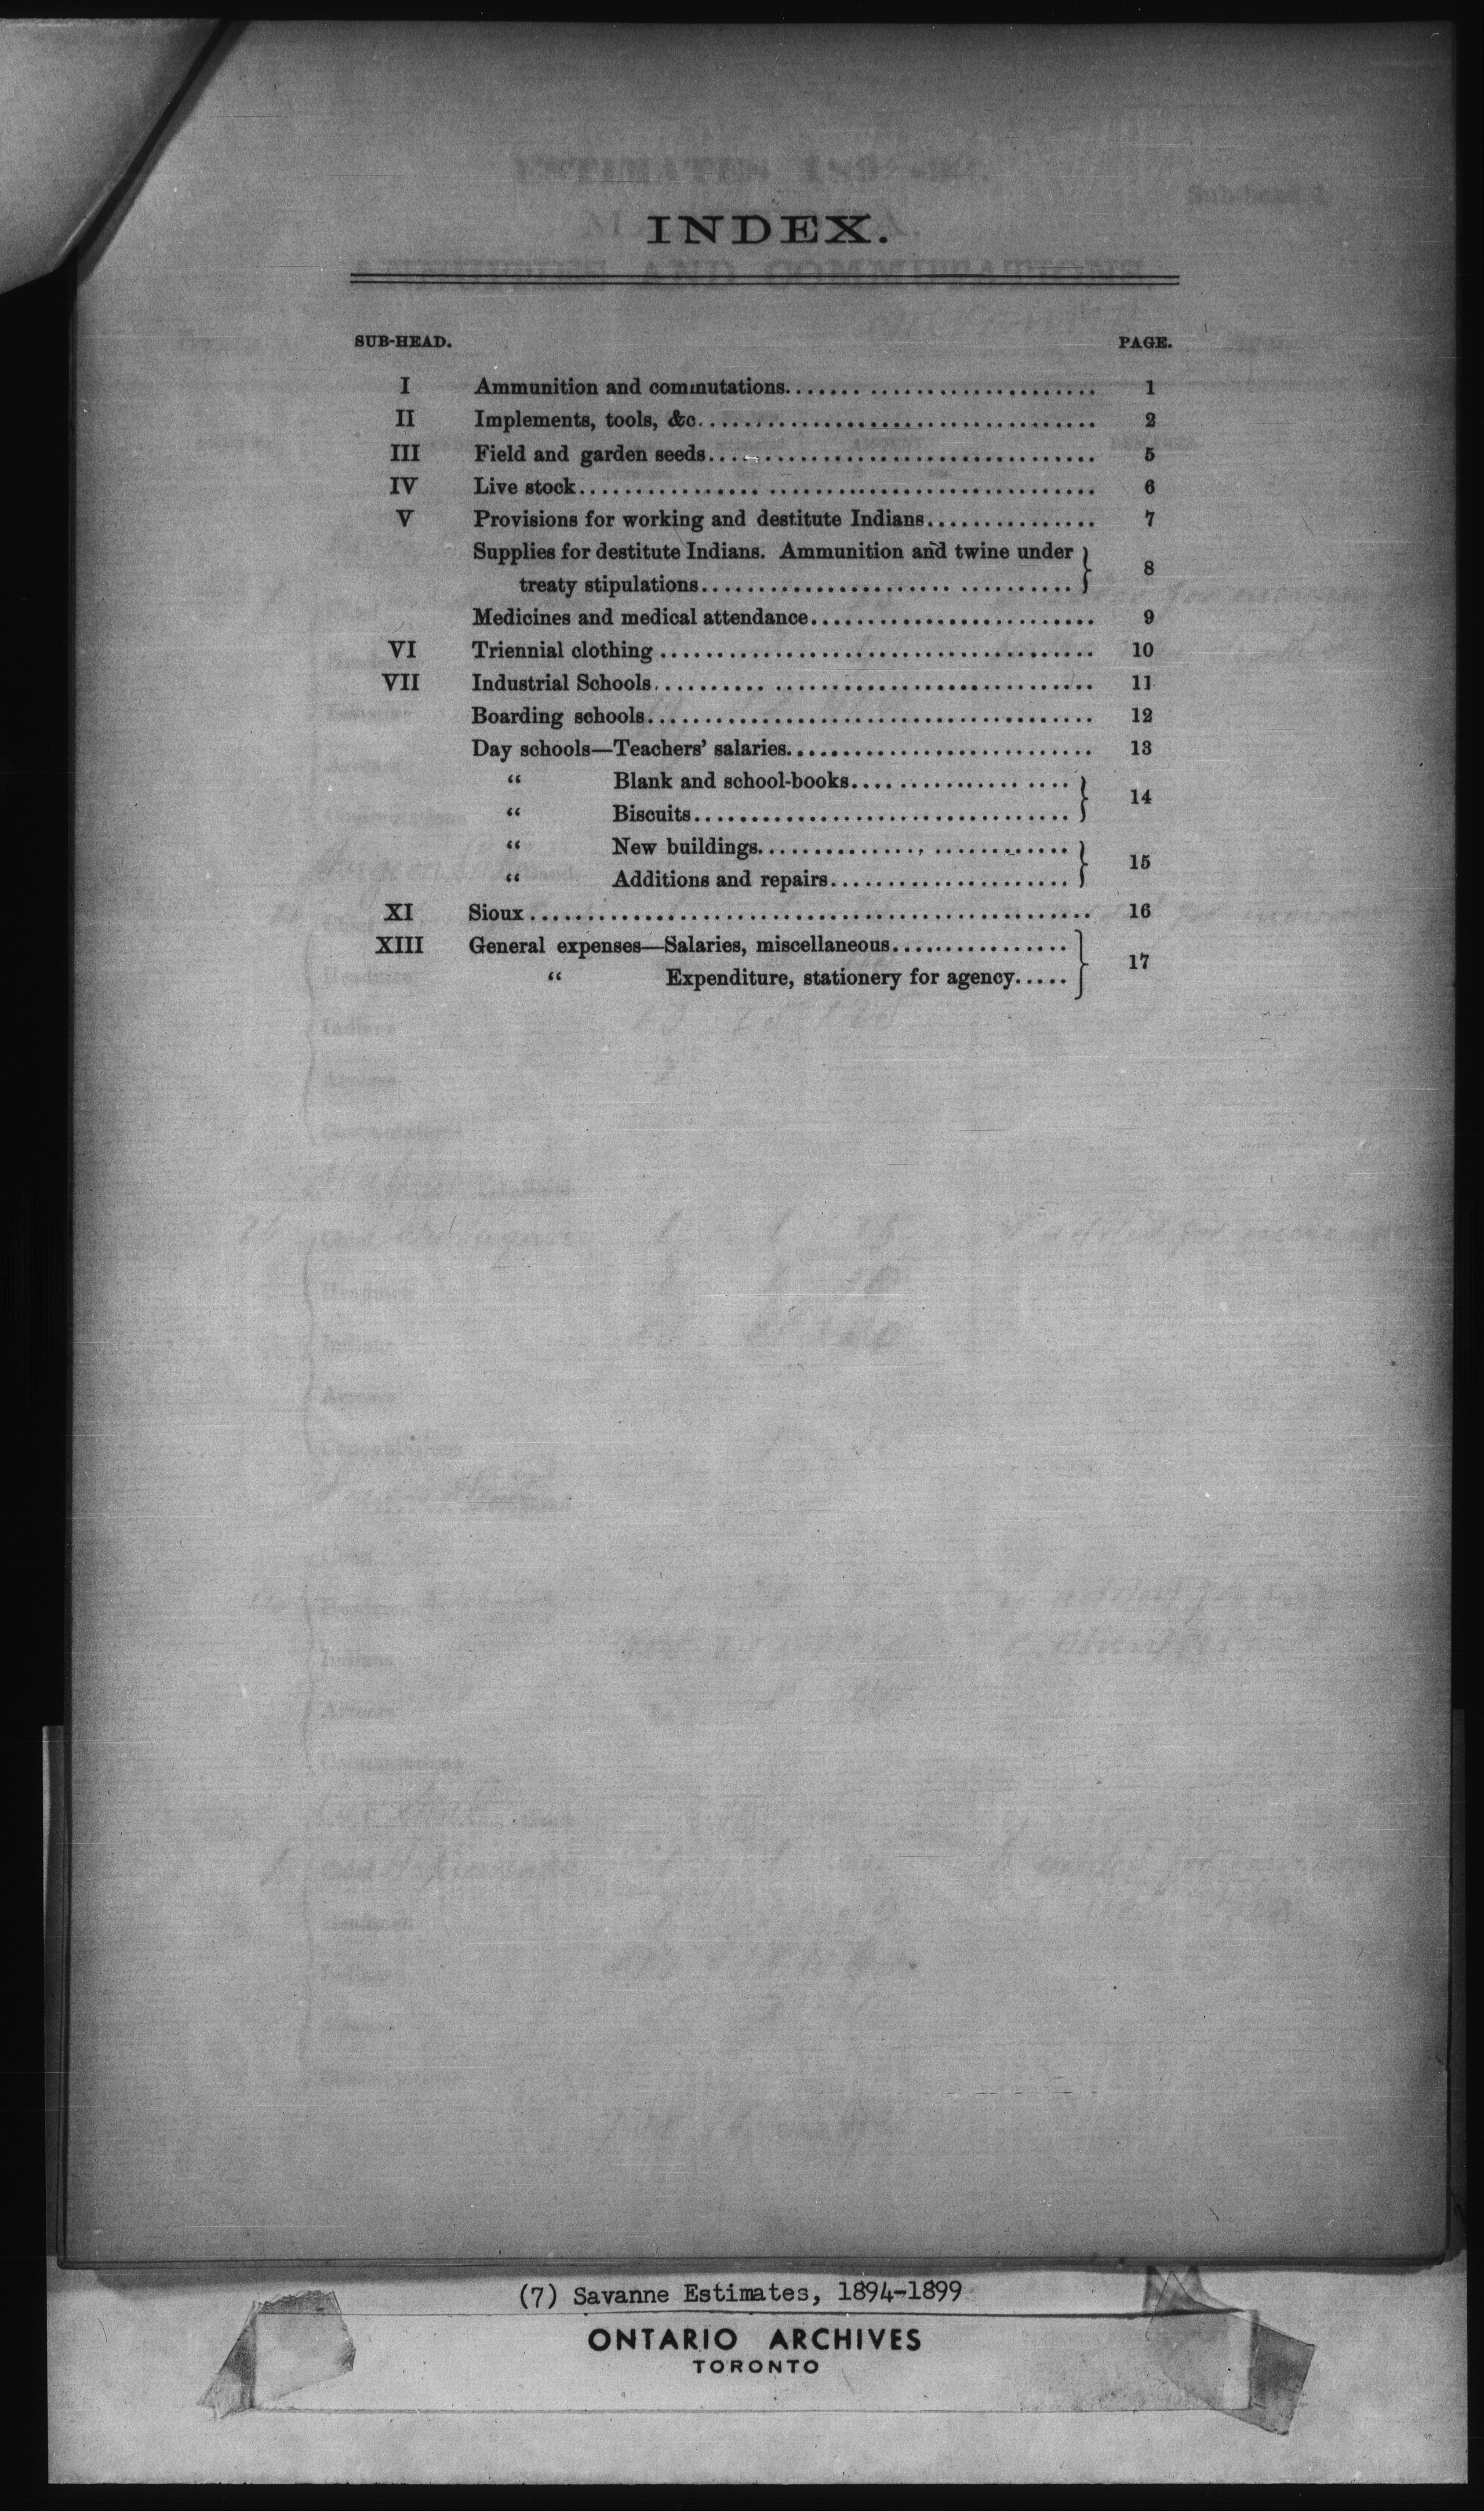 INDEX.
SUB-HEAD. PAGE.
I Ammunition and commutations................................ 1
II Implements, tools, &c................................... 2
III Field and garden seeds.................................. 5
IV Live stock.............................................. 6
V Provisions for working and destitute Indians............... 7
Supplies for destitute Indians. Ammunition and twine under
treaty stipulations................................ 8
Medicines and medical attendance......................... 9
VI Triennial clothing ...................................... 10
VII Industrial Schools...................................... 11
Boarding schools....................................... 12
Day schools—Teachers' salaries........................... 13
“ Blank and school-books...................
“ Biscuits................................. 14
“ New buildings...........................
“ Additions and repairs..................... 15
XI Sioux................................................. 16
XIII General expenses—Salaries, miscellaneous................
“ Expenditure, stationery for agency..... 17
(7) Savanne Estimates, 1894-1899
ONTARIO ARCHIVES
TORONTO